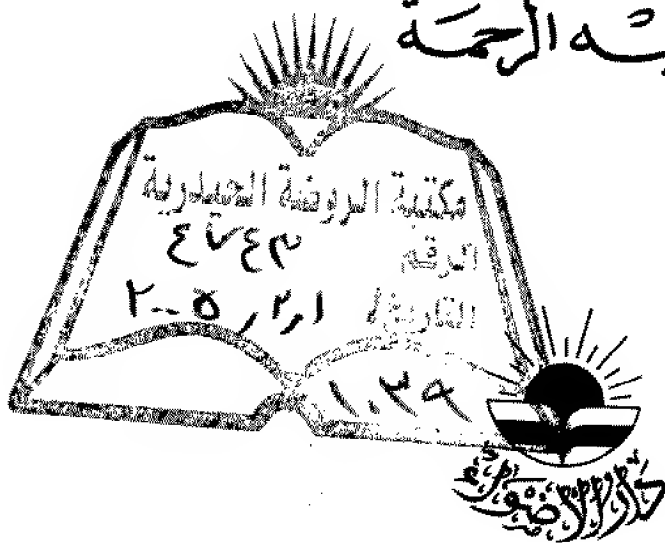 الرحمة
مكتبة الروضة الحيدرية
الرقم
التاريخ ١ / ٢ / ٢٠٠٥
١٠٣٩
دار الأضواء